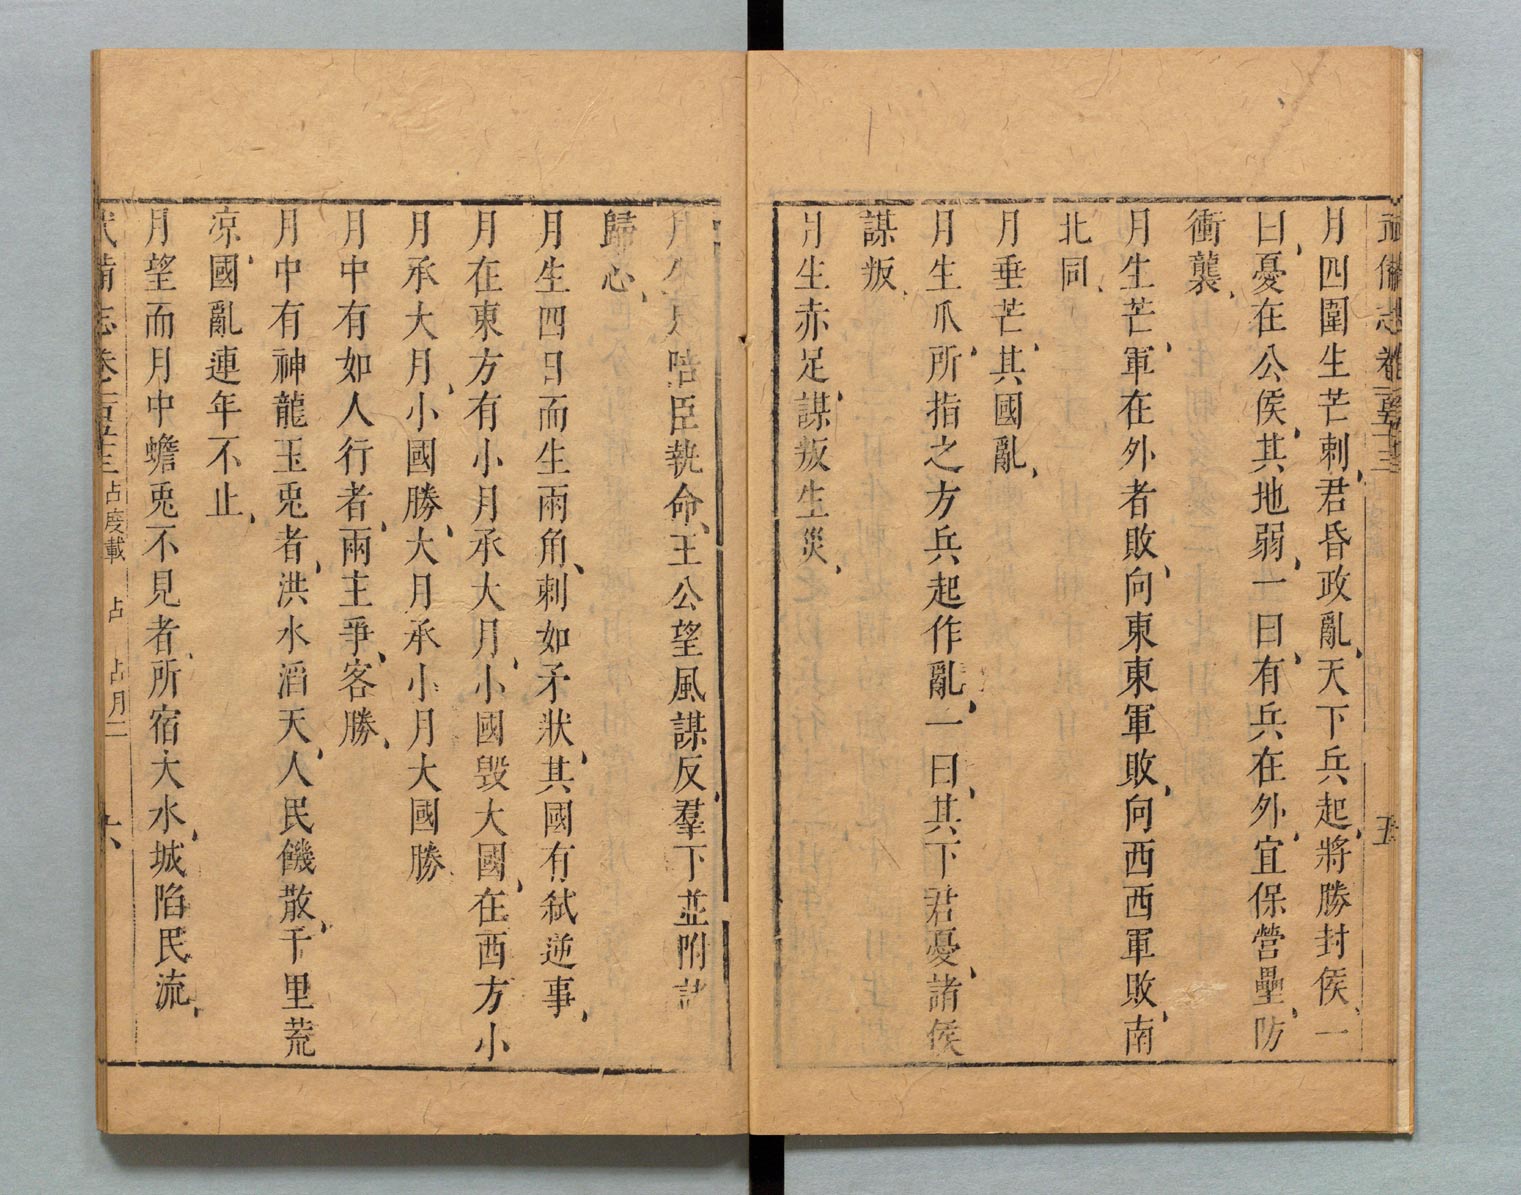 武備志卷一百五十三
五
月四圍生芒刺、君昏政亂、天下兵起、將勝封侯、一
曰、憂在公侯、其地弱、一曰、有兵在外、宜保營壘、防
衝襲、
月生芒、軍在外者敗、向東東軍敗、向西西軍敗、南
北同、
月垂芒、其國亂、
月生爪、所指之方兵起作亂、一曰、其下君憂、諸侯
謀叛、
月生赤足、謀叛生災、
月生足、臣執命、王公望風謀反、羣下並附
歸心、
月生四日而生兩角、刺如矛狀、其國有弒逆事、
月在東方有小月承大月、小國毀大國、在西方小
月承大月、小國勝、大月承小月大國勝
月中有如人行者、兩主爭、客勝、
月中有神龍玉兎者、洪水滔天、人民饑散、千里荒
凉、國亂連年不止、
月望而月中蟾兎不見者、所宿大水、城陷民流、
武備志卷一百五十三 占度載 占 占月二 六